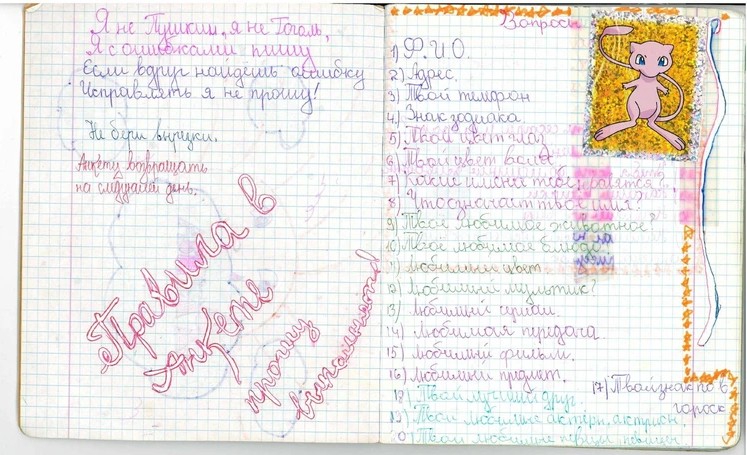 Я не Пушкин, я не Гоголь,
Я с ошибками пишу
Если вдруг найдёшь ошибку
Исправлять я не прошу!
Не бери вырезки.
Анкету возвращать
на следущий день.
Правила в
Анкете
прошу
выполнять
Вопросы
1) Ф.И.О.
2) Адрес.
3) Твой телефон
4) Знак зодиака.
5) Твой цвет глаз
6) Твой цвет волос
7) Какие имена тебе нравятся
8) Что означает твоё имя?
9) Твоё любимое животное?
10) Твоё любимое блюдо.
11) Любимый цвет
12) Любимый мультик?
13) Любимый сериал.
14) Любимая передача.
15) Любимый фильм.
16) Любимый предмет.
17) Твой знак по в.
гороск
18) Твой лучший друг.
19) Твои любимые актёры, актрисы.
20) Твои любимые певцы, певицы.